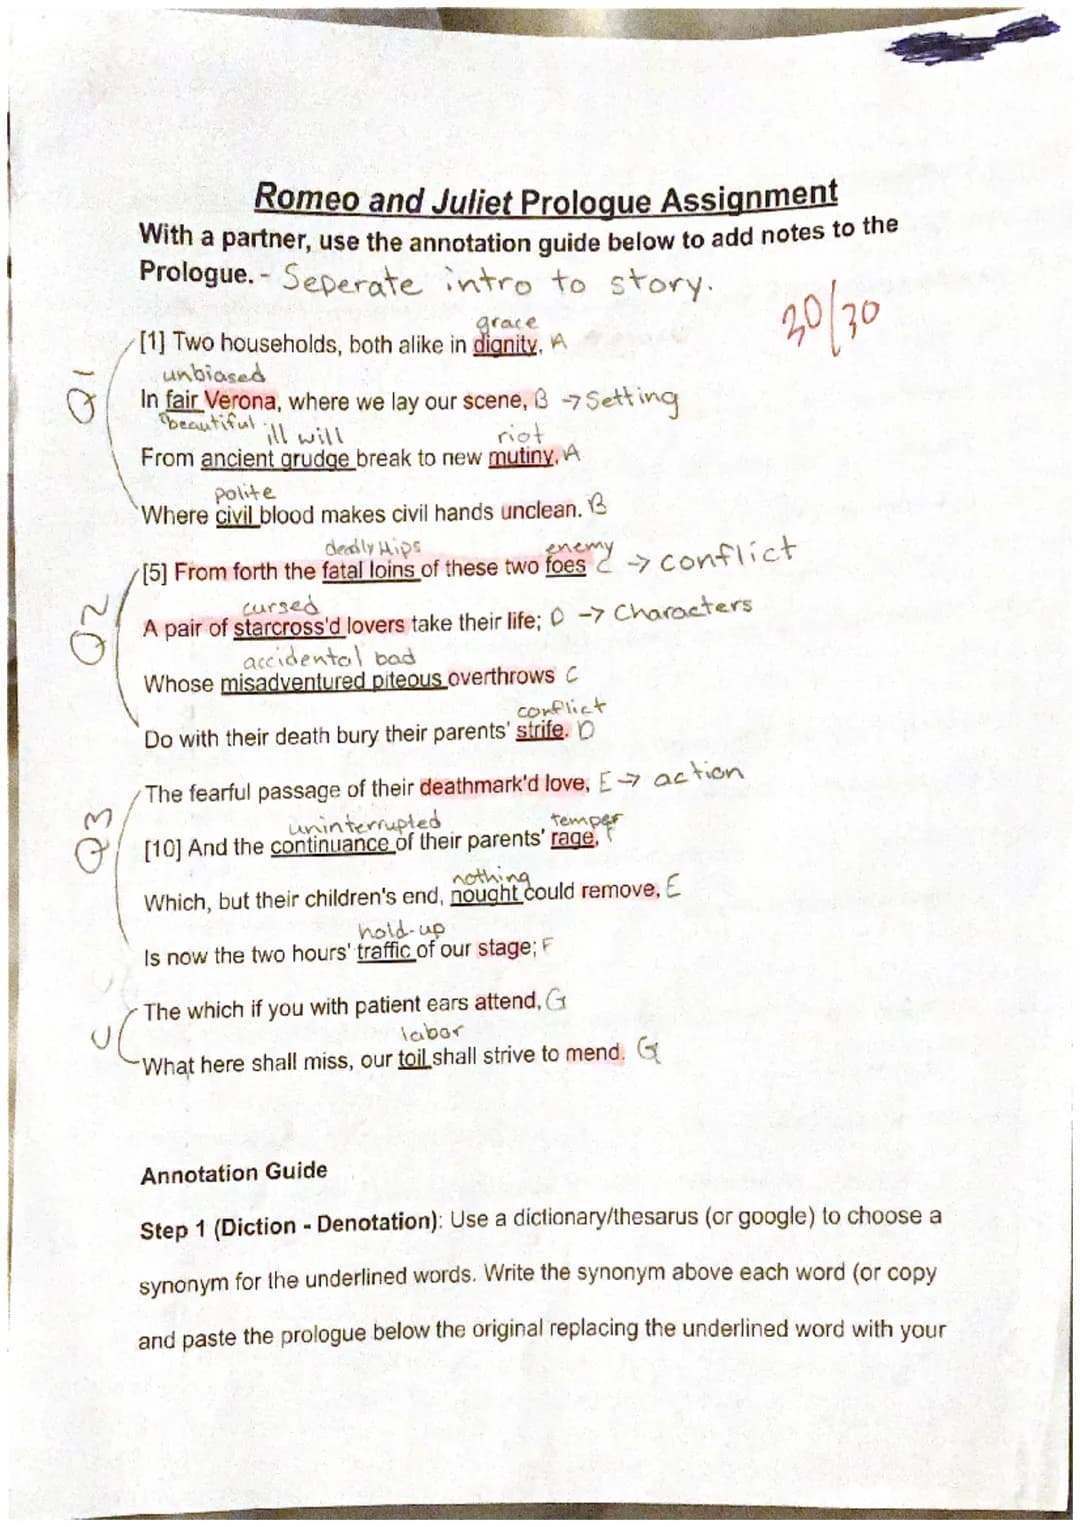 Romeo and Juliet Prologue Assignment
With a partner, use the annotation guide below to add notes to the
Prologue. - Seperate intro to story.
30/30
grace
[1] Two households, both alike in dignity, A
Q1
unbiased
In fair Verona, where we lay our scene, B → Setting
beautiful
ill will riot
From ancient grudge break to new mutiny, A
polite
Where civil blood makes civil hands unclean. B
deadly Hips enemy
[5] From forth the fatal loins of these two foes C → conflict
Q2
cursed
A pair of starcross'd lovers take their life; D → Characters
accidental bad
Whose misadventured piteous overthrows C
conflict
Do with their death bury their parents' strife. D
The fearful passage of their deathmark'd love, E → action
Q3
uninterrupted temper
[10] And the continuance of their parents' rage, F
nothing
Which, but their children's end, nought could remove, E
hold-up
Is now the two hours' traffic of our stage; F
The which if you with patient ears attend, G
labor
What here shall miss, our toil shall strive to mend. G
Annotation Guide
Step 1 (Diction - Denotation): Use a dictionary/thesarus (or google) to choose a
synonym for the underlined words. Write the synonym above each word (or copy
and paste the prologue below the original replacing the underlined word with your